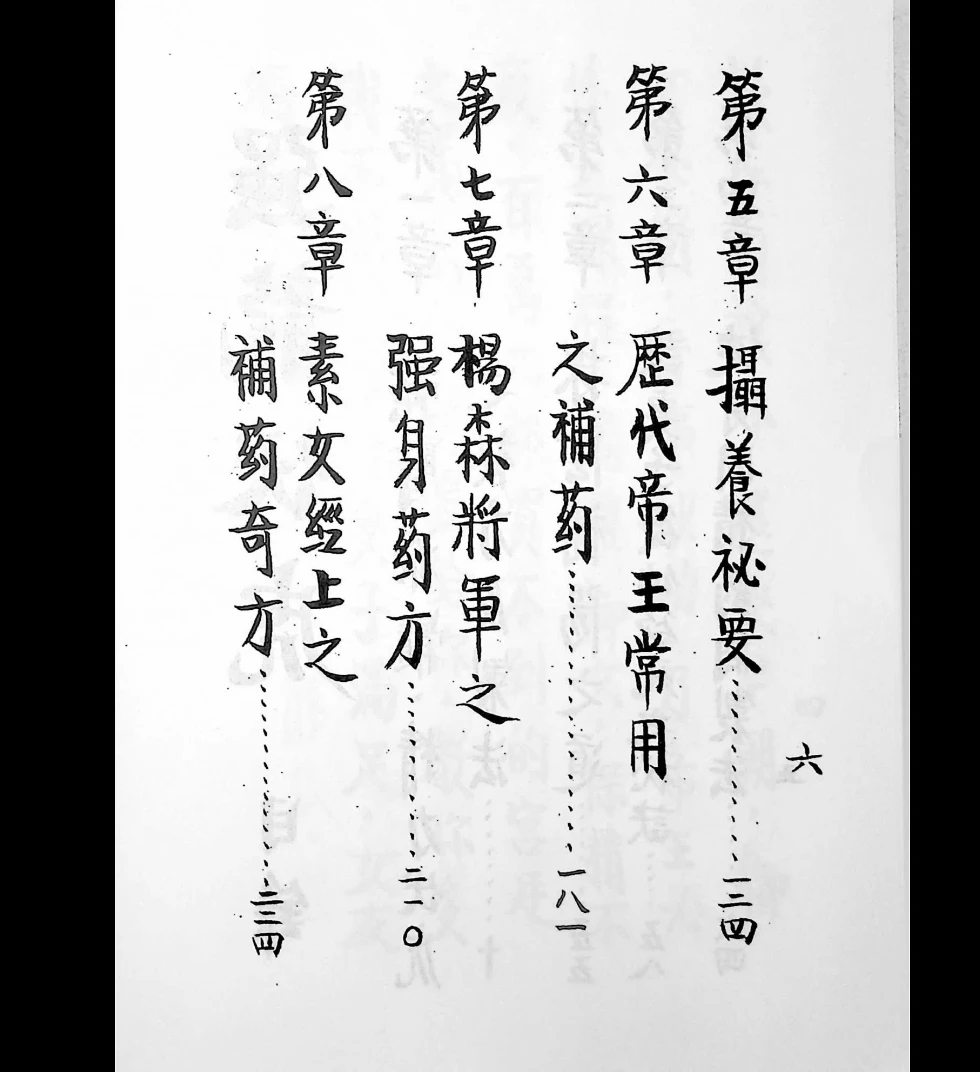 六
第五章 攝養祕要……一三四
第六章 歷代帝王常用
之補药……一八一
第七章 楊森將軍之
强身药方……二一〇
第八章 素女經上之
補药奇方……二三四